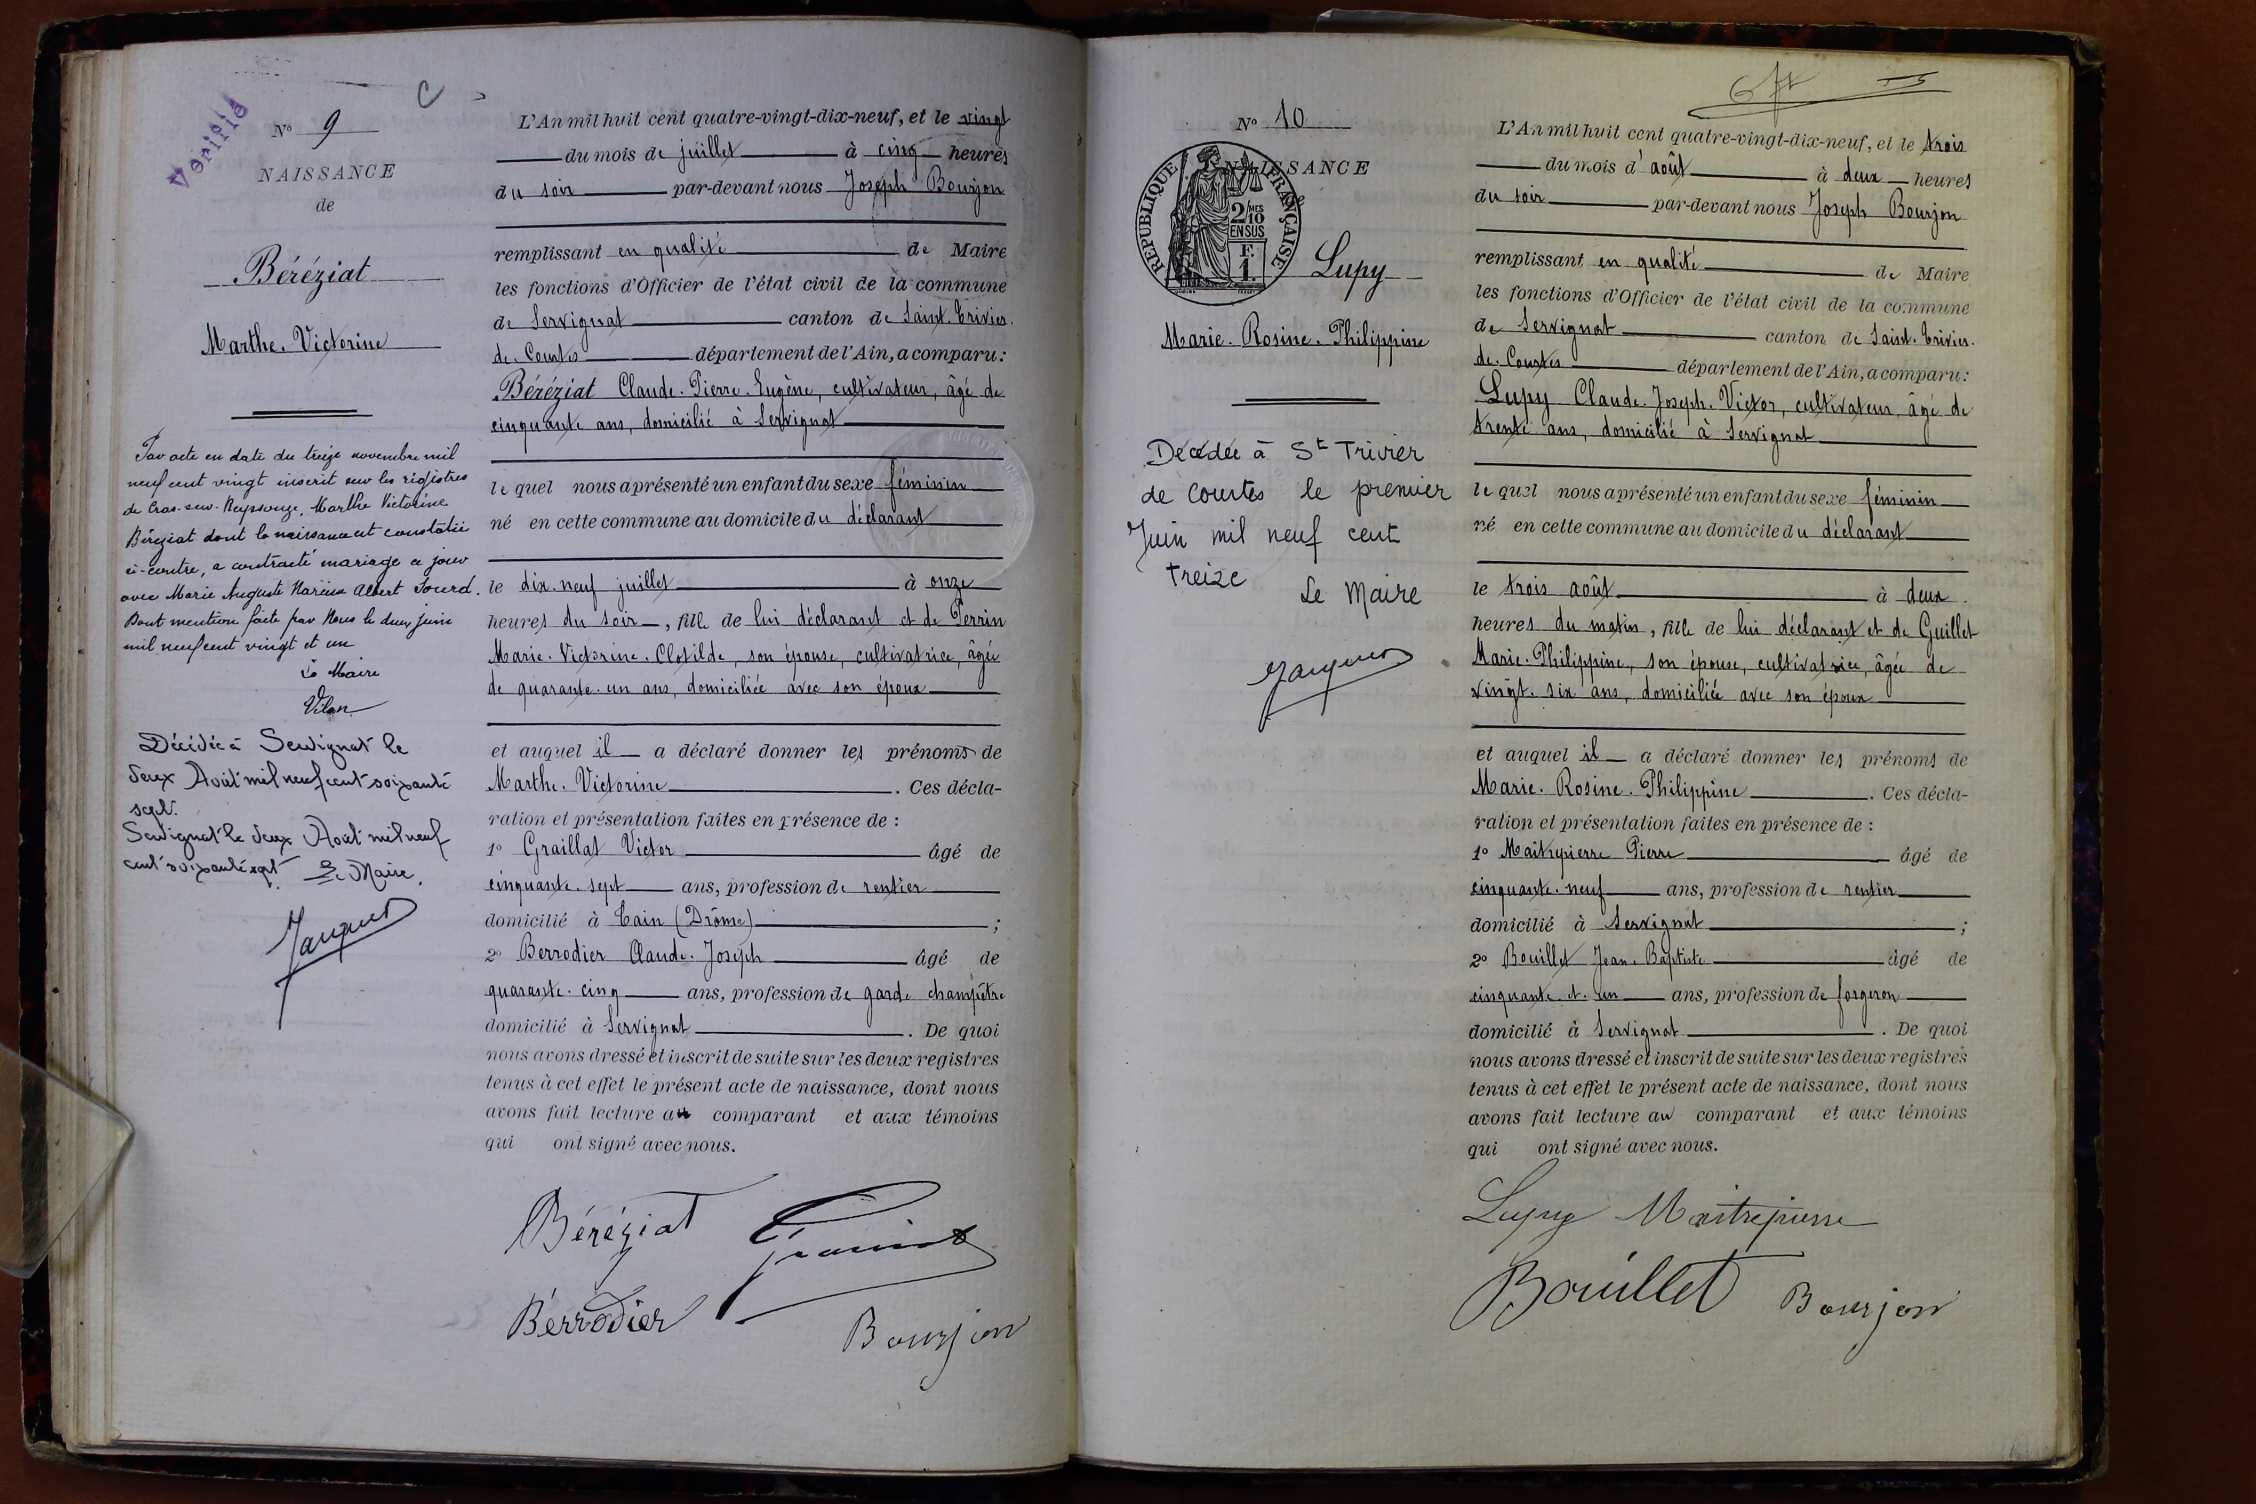 Vérifié
C
N° 9
NAISSANCE
de
Béréziat
Marthe. Victorine
Par acte en date du treize novembre mil
neuf cent vingt inscrit sur les registres
de Cras-sur-Reyssouze, Marthe Victorine
Béréziat dont la naissance est constatée
ci-contre, a contracté mariage ce jour
avec Marie Auguste Albert Sourd.
Dont mention faite par Nous le deux juin
mil neuf cent vingt et un
Le Maire
Décédée à Servignat le
deux Août mil neuf cent soixante
sept.
Servignat le deux Août mil neuf
cent soixante sept. Le Maire.
L'An mil huit cent quatre-vingt-dix-neuf, et le vingt
du mois de juillet à cinq heures
du soir par-devant nous Joseph Bourjon
remplissant en qualité de Maire
les fonctions d'Officier de l'état civil de la commune
de Servignat canton de Saint. Trivier.
de. Courtes département de l'Ain, a comparu:
Béréziat Claude. Pierre. Eugène, cultivateur, âgé de
cinquante ans, domicilié à Servignat
le quel nous a présenté un enfant du sexe féminin
né en cette commune au domicile du déclarant
le dix. neuf juillet à onze
heures du soir, fille de lui déclarant et de Perrin
Marie. Victorine. Clotilde, son épouse, cultivatrice, âgée
de quarante. un ans, domiciliée avec son époux
et auquel il a déclaré donner les prénoms de
Marthe. Victorine. Ces décla-
ration et présentation faites en présence de :
1° Graillat Victor âgé de
cinquante. sept ans, profession de rentier
domicilié à Tain (Drôme) ;
2° Berrodier Claude. Joseph âgé de
quarante. cinq ans, profession de garde champêtre
domicilié à Servignat. De quoi
nous avons dressé et inscrit de suite sur les deux registres
tenus à cet effet le présent acte de naissance, dont nous
avons fait lecture au comparant et aux témoins
qui ont signé avec nous.
Béréziat
Berrodier
Bourjon
N° 10
NAISSANCE
RÉPUBLIQUE FRANÇAISE
2/10 MES
EN SUS
F.
1
Lupy
Marie. Rosine. Philippine
Décédée à St Trivier
de Courtes le premier
Juin mil neuf cent
treize
Le Maire
L'An mil huit cent quatre-vingt-dix-neuf, et le trois
du mois d'août à deux heures
du soir par-devant nous Joseph Bourjon
remplissant en qualité de Maire
les fonctions d'Officier de l'état civil de la commune
de Servignat canton de Saint. Trivier.
de. Courtes département de l'Ain, a comparu:
Lupy Claude. Joseph. Victor, cultivateur, âgé de
trente ans, domicilié à Servignat
le quel nous a présenté un enfant du sexe féminin
né en cette commune au domicile du déclarant
le trois août à deux
heures du matin, fille de lui déclarant et de Guillet
Marie. Philippine, son épouse, cultivatrice, âgée de
vingt. six ans, domiciliée avec son époux
et auquel il a déclaré donner les prénoms de
Marie. Rosine. Philippine. Ces décla-
ration et présentation faites en présence de :
1° Maitrepierre Pierre âgé de
cinquante. neuf ans, profession de rentier
domicilié à Servignat ;
2° Bouillet Jean. Baptiste âgé de
cinquante. et. un ans, profession de forgeron
domicilié à Servignat. De quoi
nous avons dressé et inscrit de suite sur les deux registres
tenus à cet effet le présent acte de naissance, dont nous
avons fait lecture au comparant et aux témoins
qui ont signé avec nous.
Lupy Maitrepierre
Bouillet Bourjon